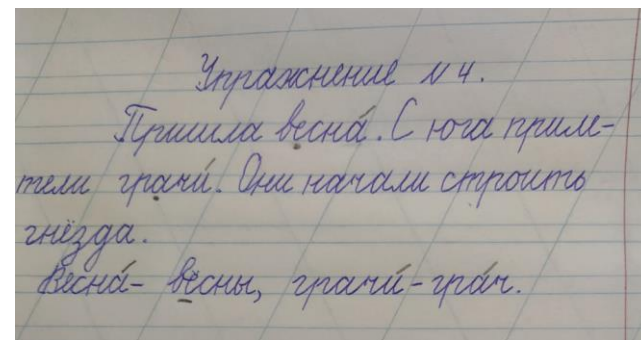 Упражнение N 4.
Пришла весна́. С юга приле-
тели грачи́. Они начали строить
гнёзда.
Весна́ - вёсны, грачи́ - гра́ч.